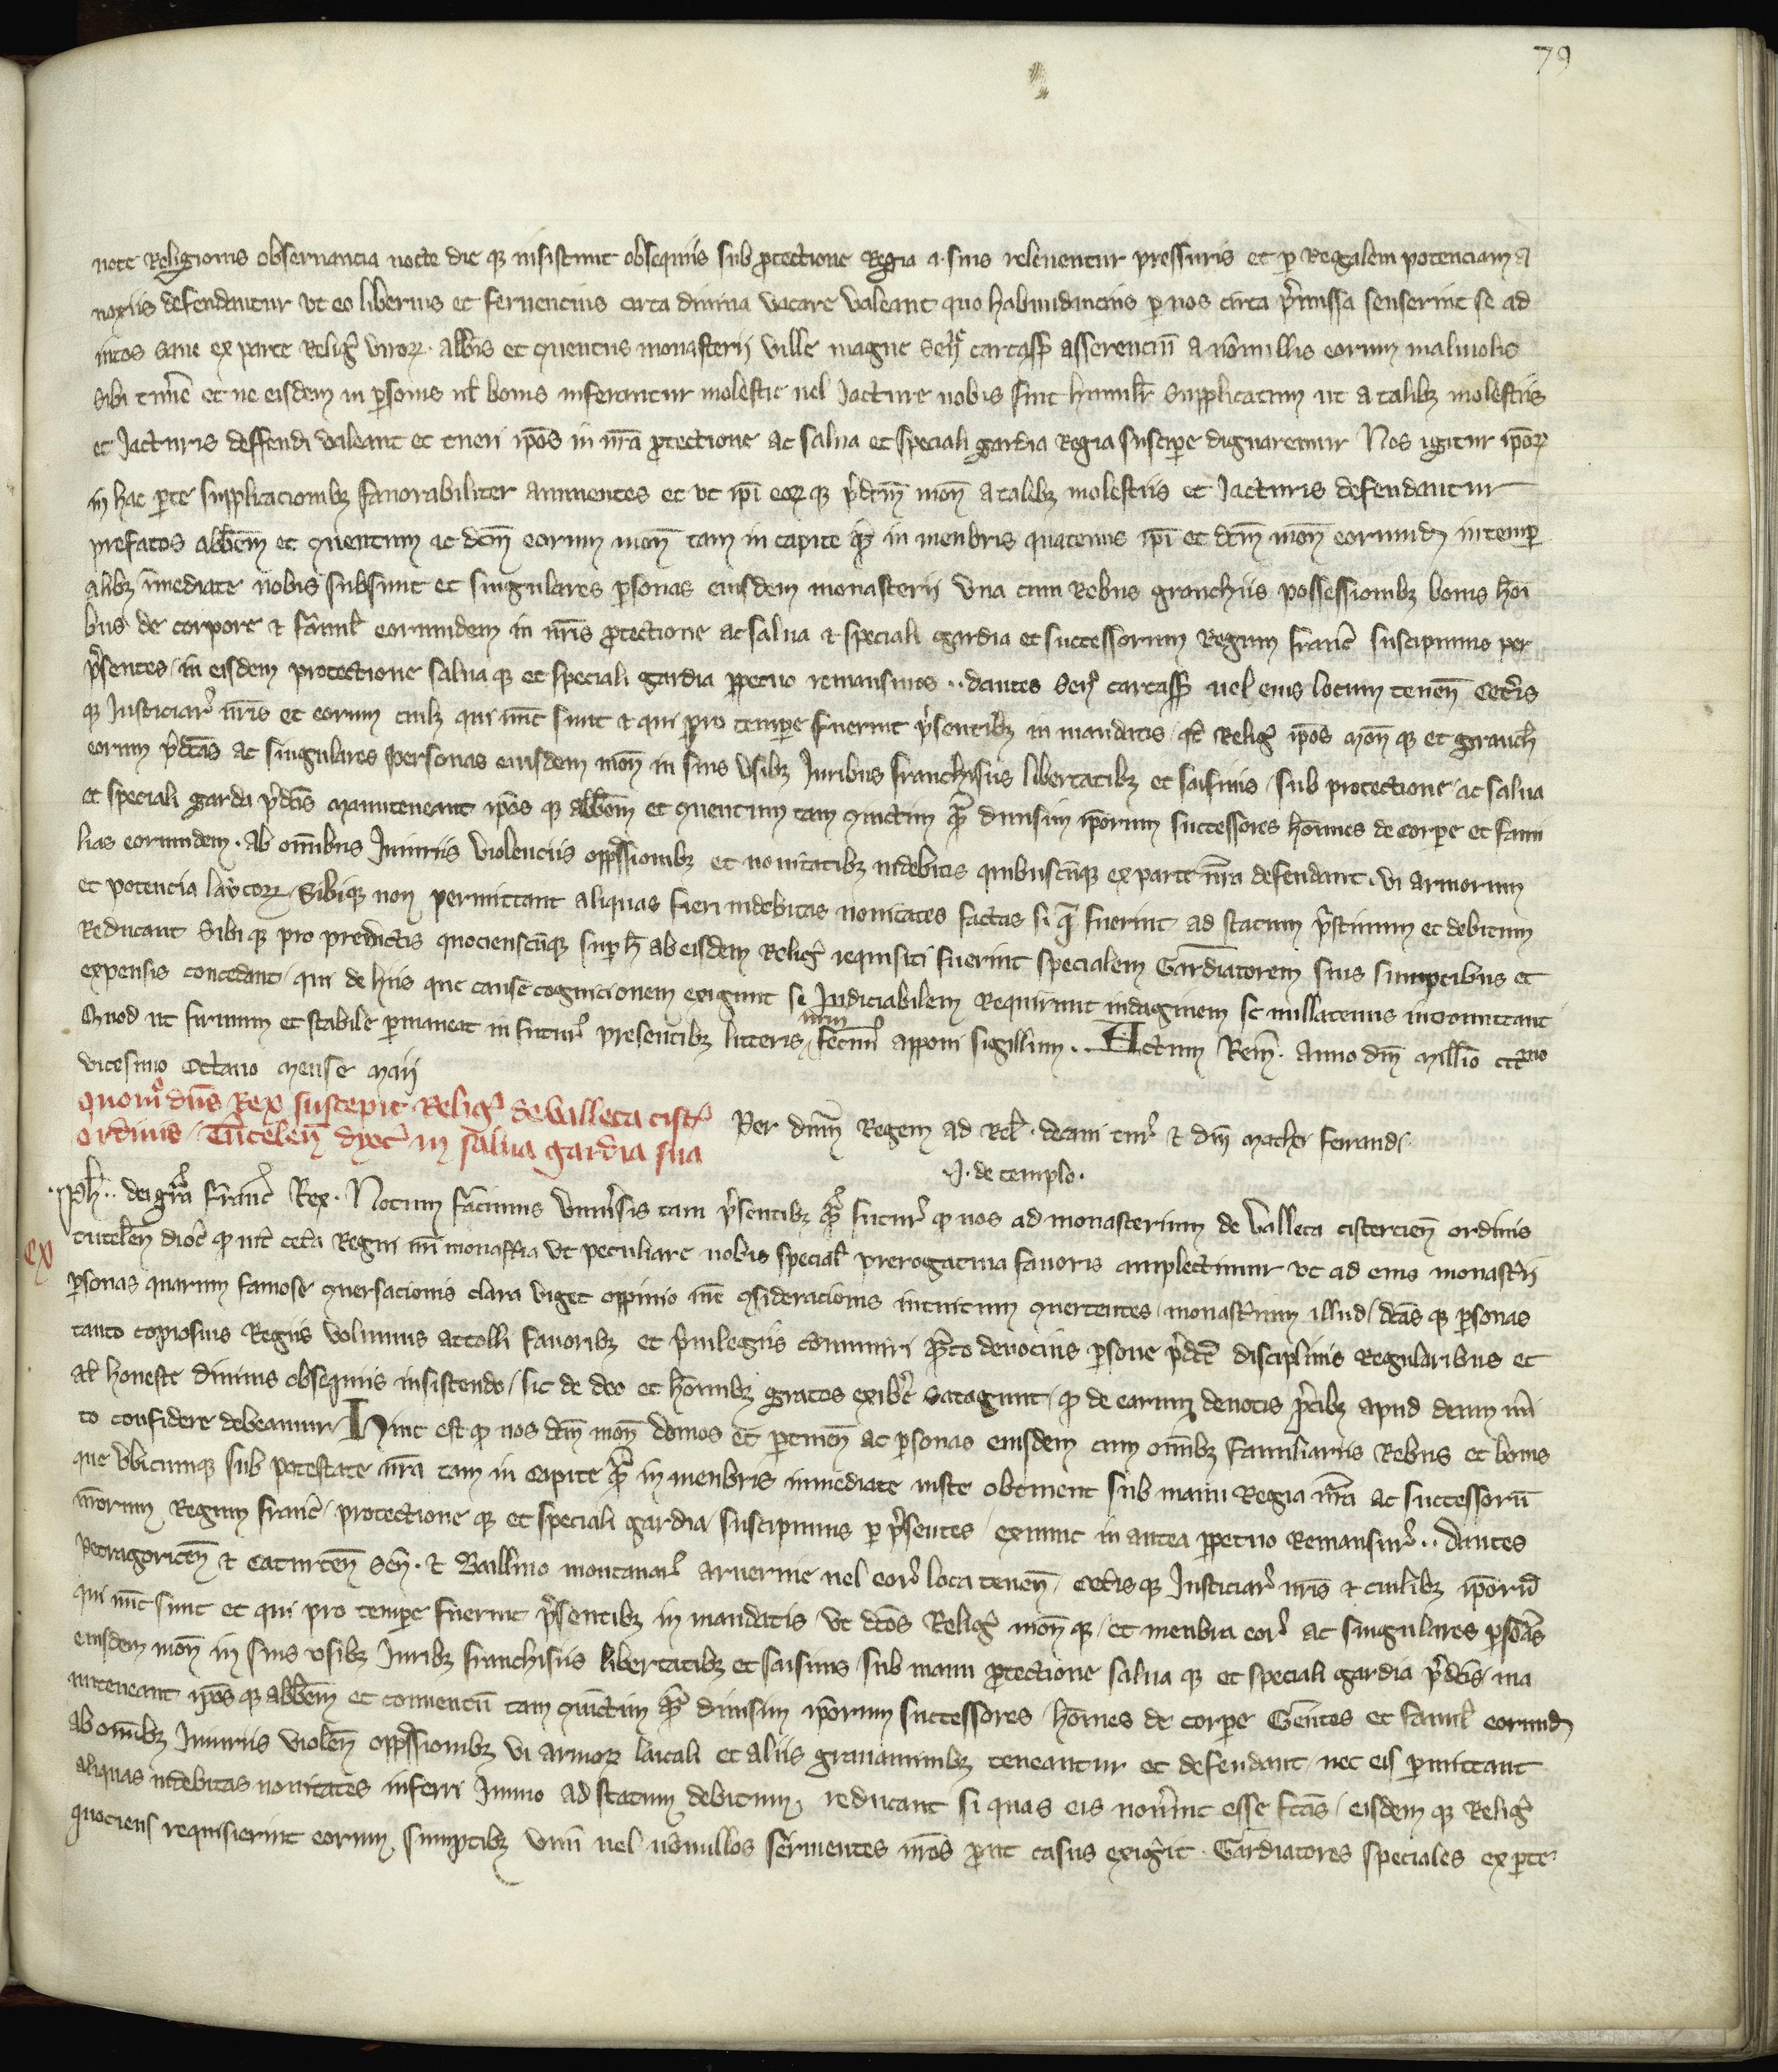 79
note Religionis obseruancia nocte die q3 insistunt obsequiis sub protectione Regia a suis releuentur pressuris et per Regalem potenciam a
noxiis defendantur vt eo liberius et feruencius circa diuina vacare valeant quo habundancius per nos circa p̃missa senserint se ad
intos Sane ex parte Relig̃ viroꝝ abb̃is et ꝯuentus monasterij ville magne Señ carcass̃ asserenciũ a nõnullis eorum maliuolis
sibi timẽe et ne eisdem in ꝑsonis ul̃ bonis inferantur molestie uel Jacture nobis fuit humilr̃ supplicatum ut a talibꝫ molestiis
et Jacturis deffendi valeant et tueri ip̃os in nr̃a ꝓtectione ac salua et speciali gardia Regia suscipe dignaremur Nos igitur ip̃oꝝ
in hac ꝑte supplicacionibꝫ fauorabiliter annuentes et vt ip̃i eoꝝ qꝫ p̃dcm̃ moñ a talibꝫ molestiis et Jacturis defendantur
prefatos abb̃em et ꝯuentum ac dcm̃ eorum moñ tam in capite q̃ꝫ in menbris quatenus ip̃i et dcm̃ moñ eorumdꝫ in temꝑ
alibꝫ ĩmediate nobis subsunt et singulares ꝑsonas eiusdem monasterij vna cum Rebus granchiis possessionibꝫ bonis hoĩ
bus de corpore & famil̃ eorumdem in nr̃is ꝓtectione ac salua & speciali gardia et successorum Regum franc̃ suscipimus per
p̃sentes / in eisdem protectione salua qꝫ et speciali gardia ꝑpetuo remansuros .. dantes Señ carcass̃ uel eius locum teneñ Cet̃is
qꝫ Justiciar̃ nr̃is et eorum cuilꝫ qui nũc sunt & qui pro tempe fuerint p̃sentibꝫ in mandatis / qd̃ Relig̃ ip̃os moñ qꝫ et granch̃
eorum p̃dc̃as ac singulares personas eiusdem moñ in suis vsibꝫ Juribus franchisiis libertatibꝫ et saisinis / sub protectione / ac salua
et speciali garda p̃dc̃is manuteneant ip̃os qꝫ abb̃em et ꝯuentum tam ꝯiunctim q̃ꝫ diuisim ip̃orum successores hoĩnes de corpe et fami
lias eorumdem . ab om̃ibus Jniuriis violenciis opp̃ssionibꝫ et nouitatibꝫ indebitis quibuscũque ex parte nr̃a defendant . vi armorum
et potencia laycoꝝ / Sibique non permittant aliquas fieri indebitas nouitates factas si q̃ fuerint ad statum p̃stinum et debitum
Reducant Sibi qꝫ pro predictis quocienscũque suꝑ h̃ ab eisdem Relig̃ requisiti fuerint specialem Gardiatorem suis sumptibus et
expensis concedant / qui de hiis que cause cognicionem exigunt seu Judiciabilem Requirunt indaginem se nullatenus intromittant
Quod ut firmum et stabile ꝑmaneat in futur̃ presentibꝫ litteris nr̃um fecim̃ apponi sigillum .. Actum Rem̃ . Anno dñi Mill̃io ccc̃mo
vicesimo Octauo mense maij
Quom̃o dñs Rex suscepit Relig̃ de valleta cist̃
Ordinis / Tutelleñ dyoc̃ in salua gardia sua
Per dñm Regem ad Rel̃ . decani tur̃ & dñi machei ferrandi
.J. de templo .
Ph̃ .. dei gr̃a franc̃ Rex . Notum facimus Vniu̾sis tam p̃sentibꝫ q̃ꝫ futur̃ qꝫ nos ad monasterium de Valleta cistercieñ ordinis
ex
tutelleñ dioc̃ qꝫ int̃ cet̃a Regni nr̃i monast̃ia vt peculiare nobis special̃ prerogatiua fauoris amplectimur vt ad eius monast̃ii
ꝑsonas quarum famose ꝯuersacionis clara viget oppinio nr̃e ꝯsideracionis intuitum ꝯuertentes / monast̃ium illud / dc̃as qꝫ ꝑsonas
tanto copiosius Regiis volumus attolli fauoribꝫ et p̃uilegiis ꝯmuniri q̃ꝫto deuocius ꝑsone p̃dc̃e disciplinis Regularibus et
al̃ honeste diuinis obsequiis insistendo / sic de deo et hoĩnibꝫ gratos exibẽ satagunt / qꝫ de earum deuotis p̃cibꝫ apud deum mĩ
to confidere debeamur / Hinc est qꝫ nos dcm̃ moñ domos et ꝑtineñ ac ꝑsonas eiusdem cum om̃ibꝫ familiariis Rebus et bonis
que vbicumque sub potestate nr̃a tam in Capite q̃ꝫ in menbris inmediate iuste obtinent sub manu Regia nr̃a ac successorũ
nr̃orum Regum franc̃ / protectione qꝫ et speciali gardia / suscipimus ꝑ p̃sentes / exnunc in antea ꝑpetuo Remansur̃ .. dantes
Petragoriceñ & Caturceñ Señ . & Bailliuo montanar̃ aruernie uel eor̃ loca teneñ / Cet̃is qꝫ Justiciar̃ nr̃is & cuilibꝫ ip̃orũ
qui nũc sunt et qui pro tempe fuerint p̃sentibꝫ in mandatis / vt dc̃os Relig̃ moñ qꝫ / et menbra eor̃ ac singulares ꝑsõas
eiusdem moñ in suis vsibꝫ Juribꝫ franchisiis libertatibꝫ et saisinis / sub manu ꝓtectione salua qꝫ et speciali gardia p̃dc̃is ma
nuteneant ip̃os qꝫ abb̃em et conuentũ tam ꝯiunctim q̃ꝫ diuisim ip̃orum successores / hoĩnes de corpe Gentes et famil̃ eorumdꝫ
ab om̃ibꝫ Jniuriis violeñ opp̃ssionibꝫ vi armoꝝ laicali et aliis grauaminibꝫ teneantur et defendant / nec eis ꝑmittant
aliquas indebitas nouitates inferri Jmmo ad statum debitum / reducant si quas eis nou̾int esse fc̃as / eisdem qꝫ Relig̃
quociens requisierint eorum sumptibꝫ vnũ uel nõnullos seruientes nr̃os ꝓut casus exig̾it . Gardiatores speciales ex ꝑte